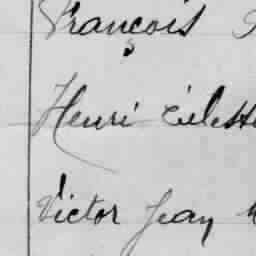 François
Henri Célest
Victor Jean